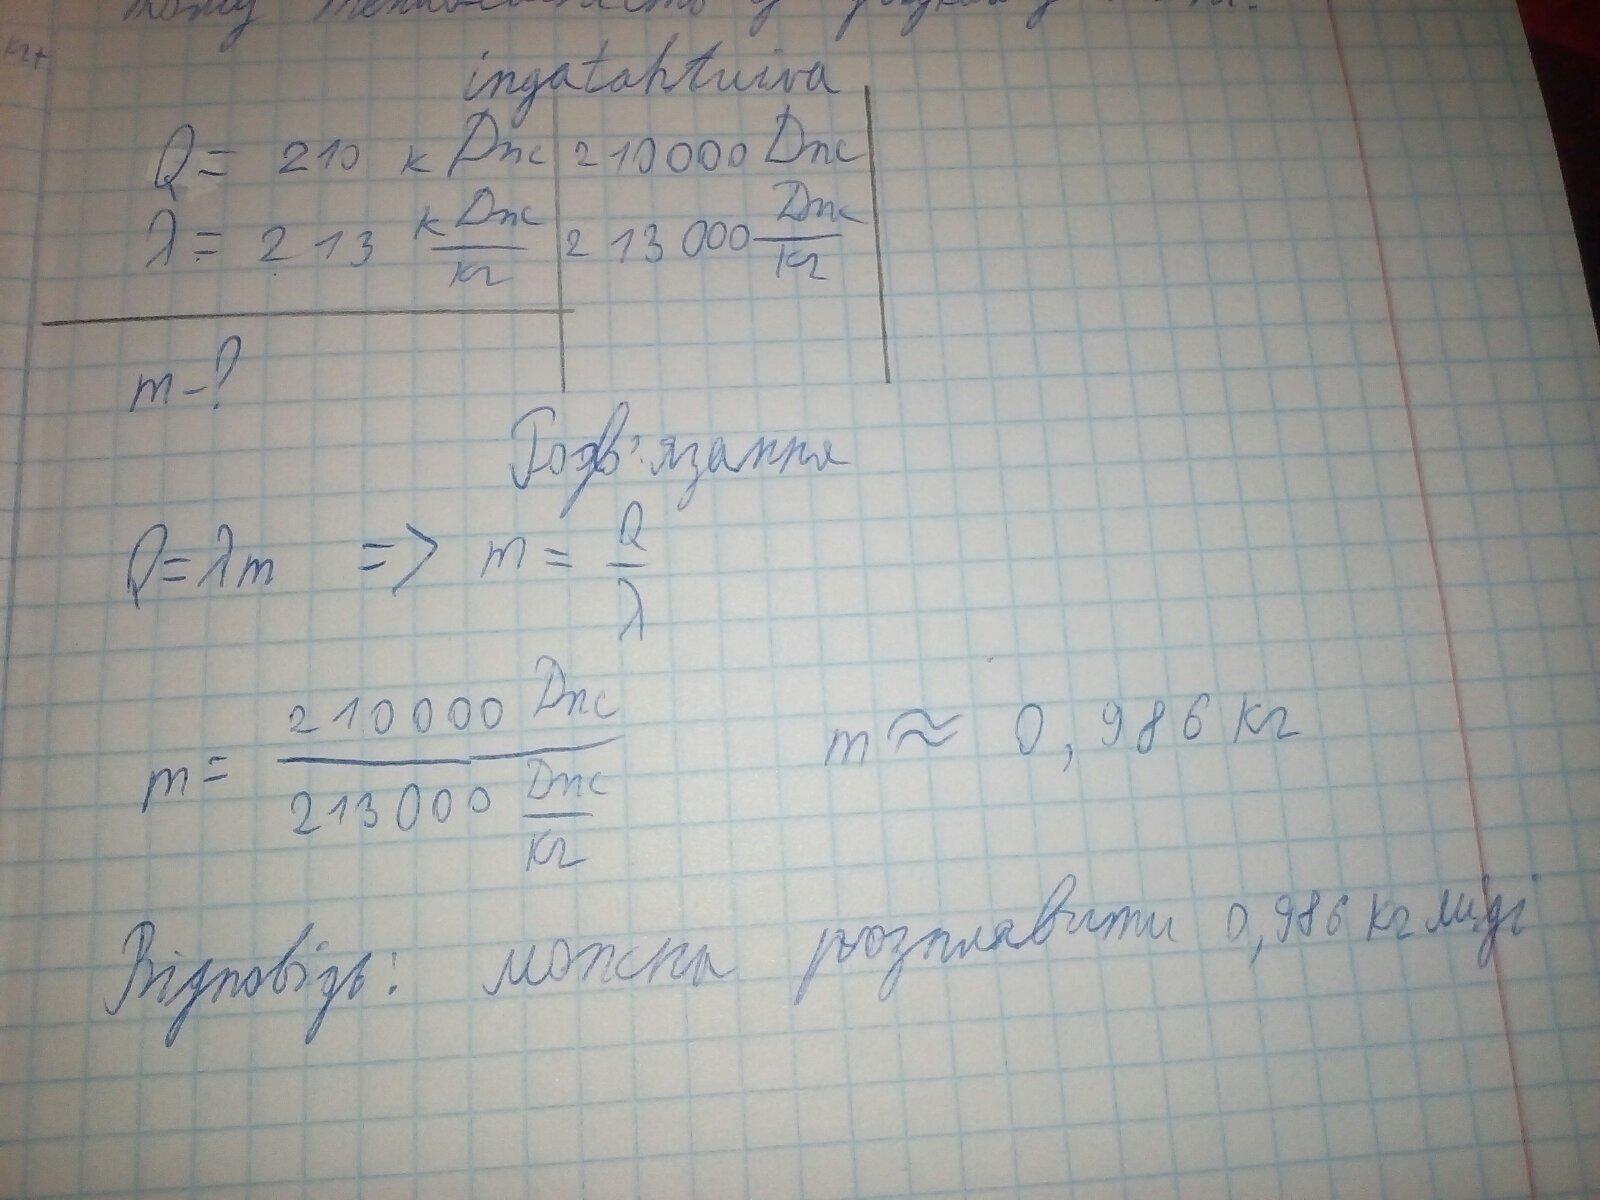 ingatahtuiva
Q = 210 кДж 210000 Дж
λ = 213 кДж/кг 213000 Дж/кг
m - ?
Розв'язання
Q = λm => m = Q/λ
m = 210000 Дж / 213000 Дж/кг m ≈ 0,986 кг
Відповідь: можна розплавити 0,986 кг міді